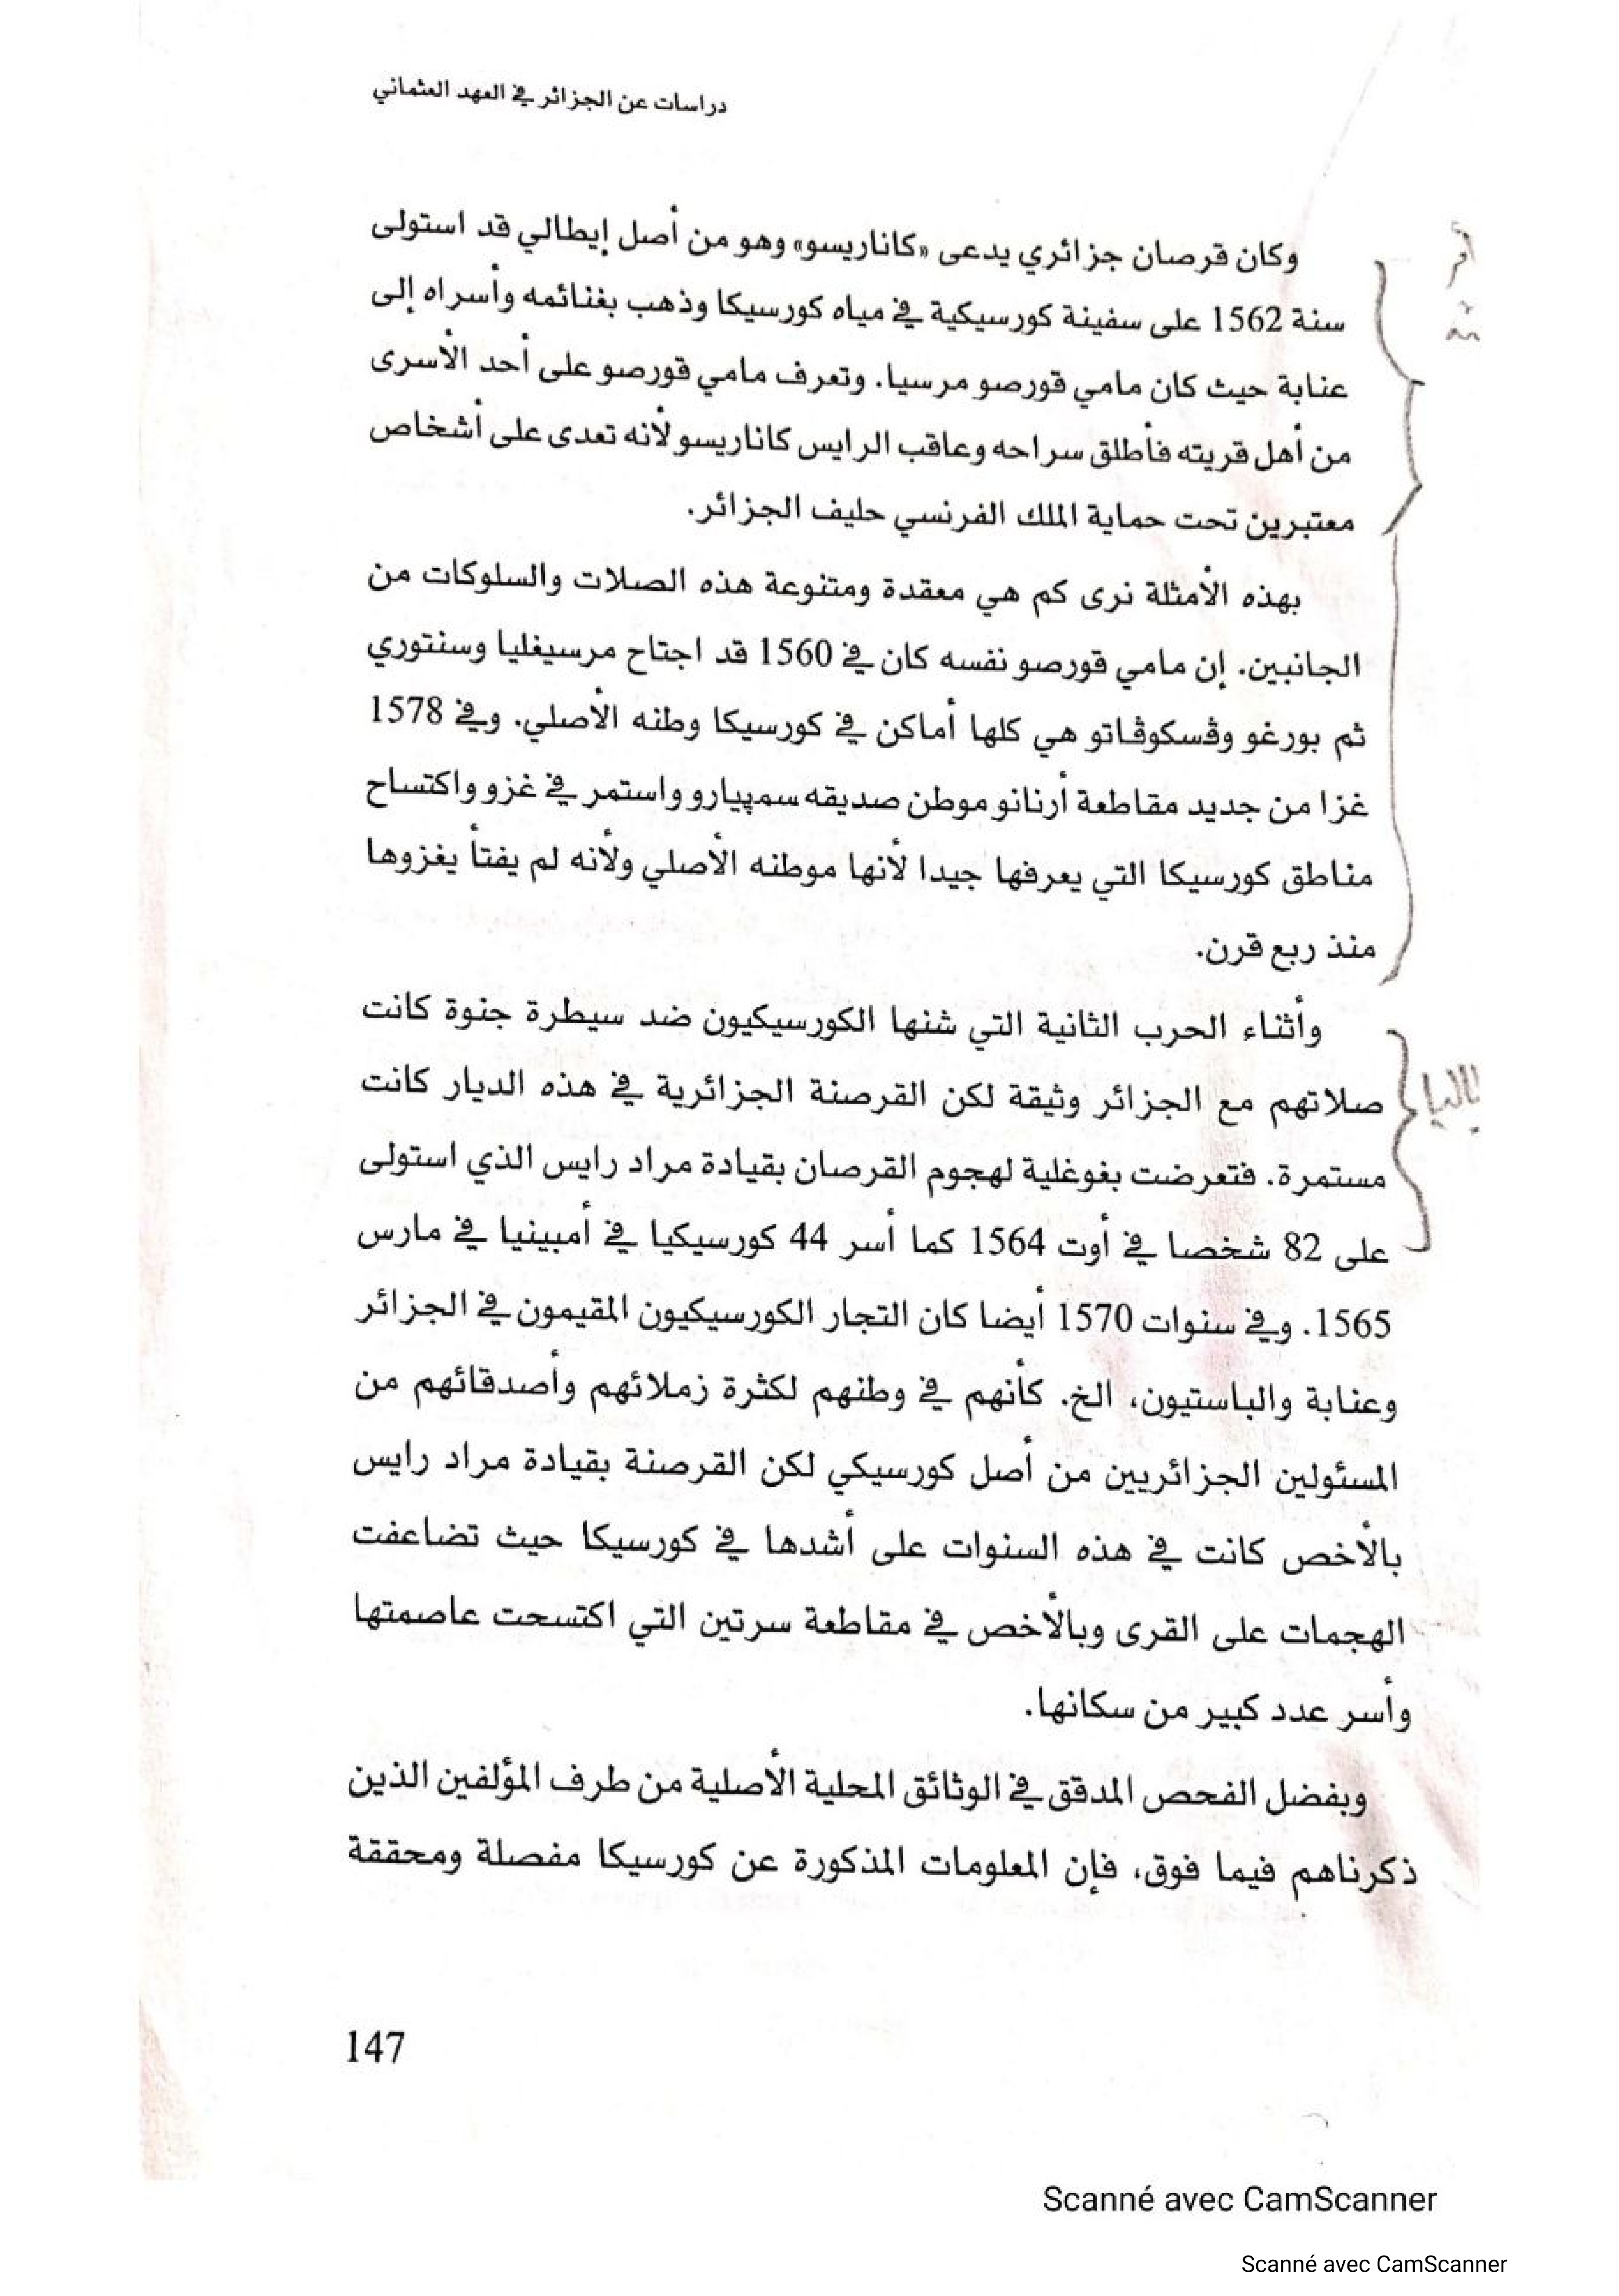 دراسات عن الجزائر في العهد العثماني
وكان قرصان جزائري يدعى «كاناريسو» وهو من أصل إيطالي قد استولى
سنة 1562 على سفينة كورسيكية في مياه كورسيكا وذهب بغنائمه وأسراه إلى
عنابة حيث كان مامي قورصو مرسيا. وتعرف مامي قورصو على أحد الأسرى
من أهل قريته فأطلق سراحه وعاقب الرايس كاناريسو لأنه تعدى على أشخاص
معتبرين تحت حماية الملك الفرنسي حليف الجزائر.
بهذه الأمثلة نرى كم هي معقدة ومتنوعة هذه الصلات والسلوكات من
الجانبين. إن مامي قورصو نفسه كان في 1560 قد اجتاح مرسيغليا وسنتوري
ثم بورغو وڤسكوڤاتو هي كلها أماكن في كورسيكا وطنه الأصلي. وفي 1578
غزا من جديد مقاطعة أرنانو موطن صديقه سمپيارو واستمر في غزو واكتساح
مناطق كورسيكا التي يعرفها جيدا لأنها موطنه الأصلي ولأنه لم يفتأ يغزوها
منذ ربع قرن.
وأثناء الحرب الثانية التي شنها الكورسيكيون ضد سيطرة جنوة كانت
صلاتهم مع الجزائر وثيقة لكن القرصنة الجزائرية في هذه الديار كانت
مستمرة. فتعرضت بغوغلية لهجوم القرصان بقيادة مراد رايس الذي استولى
على 82 شخصا في أوت 1564 كما أسر 44 كورسيكيا في أمبينيا في مارس
1565. وفي سنوات 1570 أيضا كان التجار الكورسيكيون المقيمون في الجزائر
وعنابة والباستيون، الخ. كأنهم في وطنهم لكثرة زملائهم وأصدقائهم من
المسئولين الجزائريين من أصل كورسيكي لكن القرصنة بقيادة مراد رايس
بالأخص كانت في هذه السنوات على أشدها في كورسيكا حيث تضاعفت
الهجمات على القرى وبالأخص في مقاطعة سرتين التي اكتسحت عاصمتها
وأسر عدد كبير من سكانها.
وبفضل الفحص المدقق في الوثائق المحلية الأصلية من طرف المؤلفين الذين
ذكرناهم فيما فوق، فإن المعلومات المذكورة عن كورسيكا مفصلة ومحققة
147
Scanné avec CamScanner
Scanné avec CamScanner